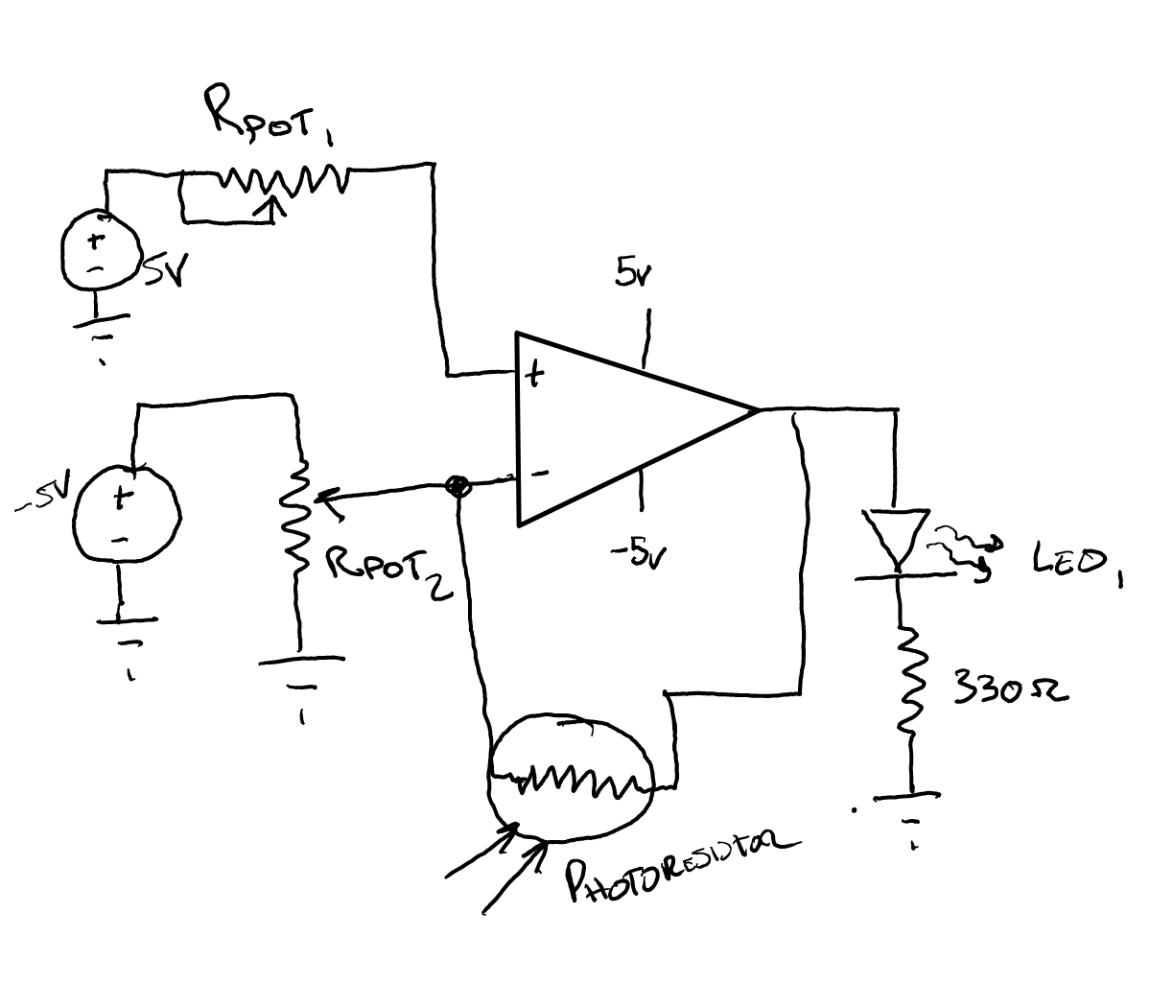 RPOT1
+
-
5V
5V
+
-5V
+
-
-
-5V
RPOT2
LED1
330Ω
PHOTORESISTOR